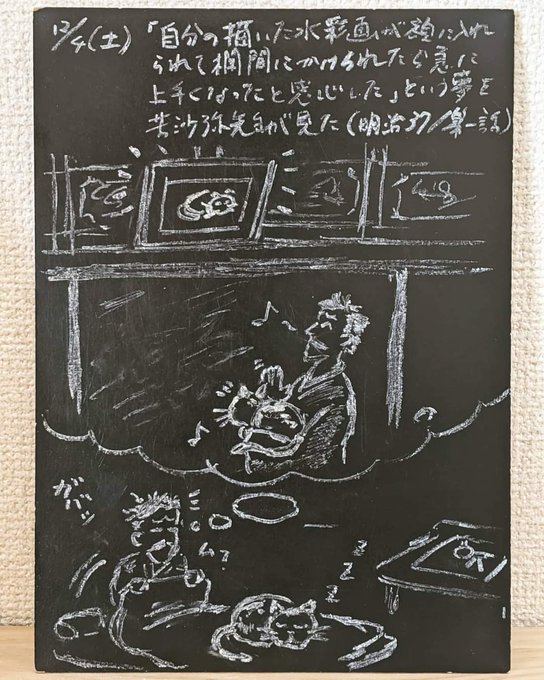 12/4(土)「自分の描いた水彩画が額に入れ
られて欄間にかけられたら急に
上手くなったと感心した」という夢を
苦沙弥先生が見た(明治37/第一話)
ガバッ
ム?
z
z
z